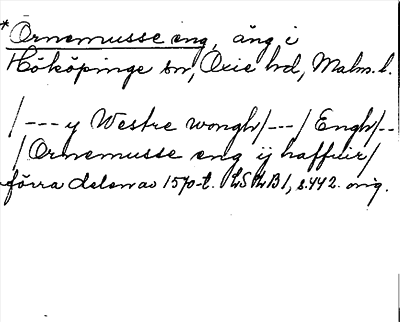 *Ornemusse eng, äng i
Hököpinge sn, Oxie hd, Malm. l.
/--- y Westre wongh/---/Engh/--
/Ornemusse eng ij haffuir/
förra delen av 1570-t. LSLB1, s. 442. orig.